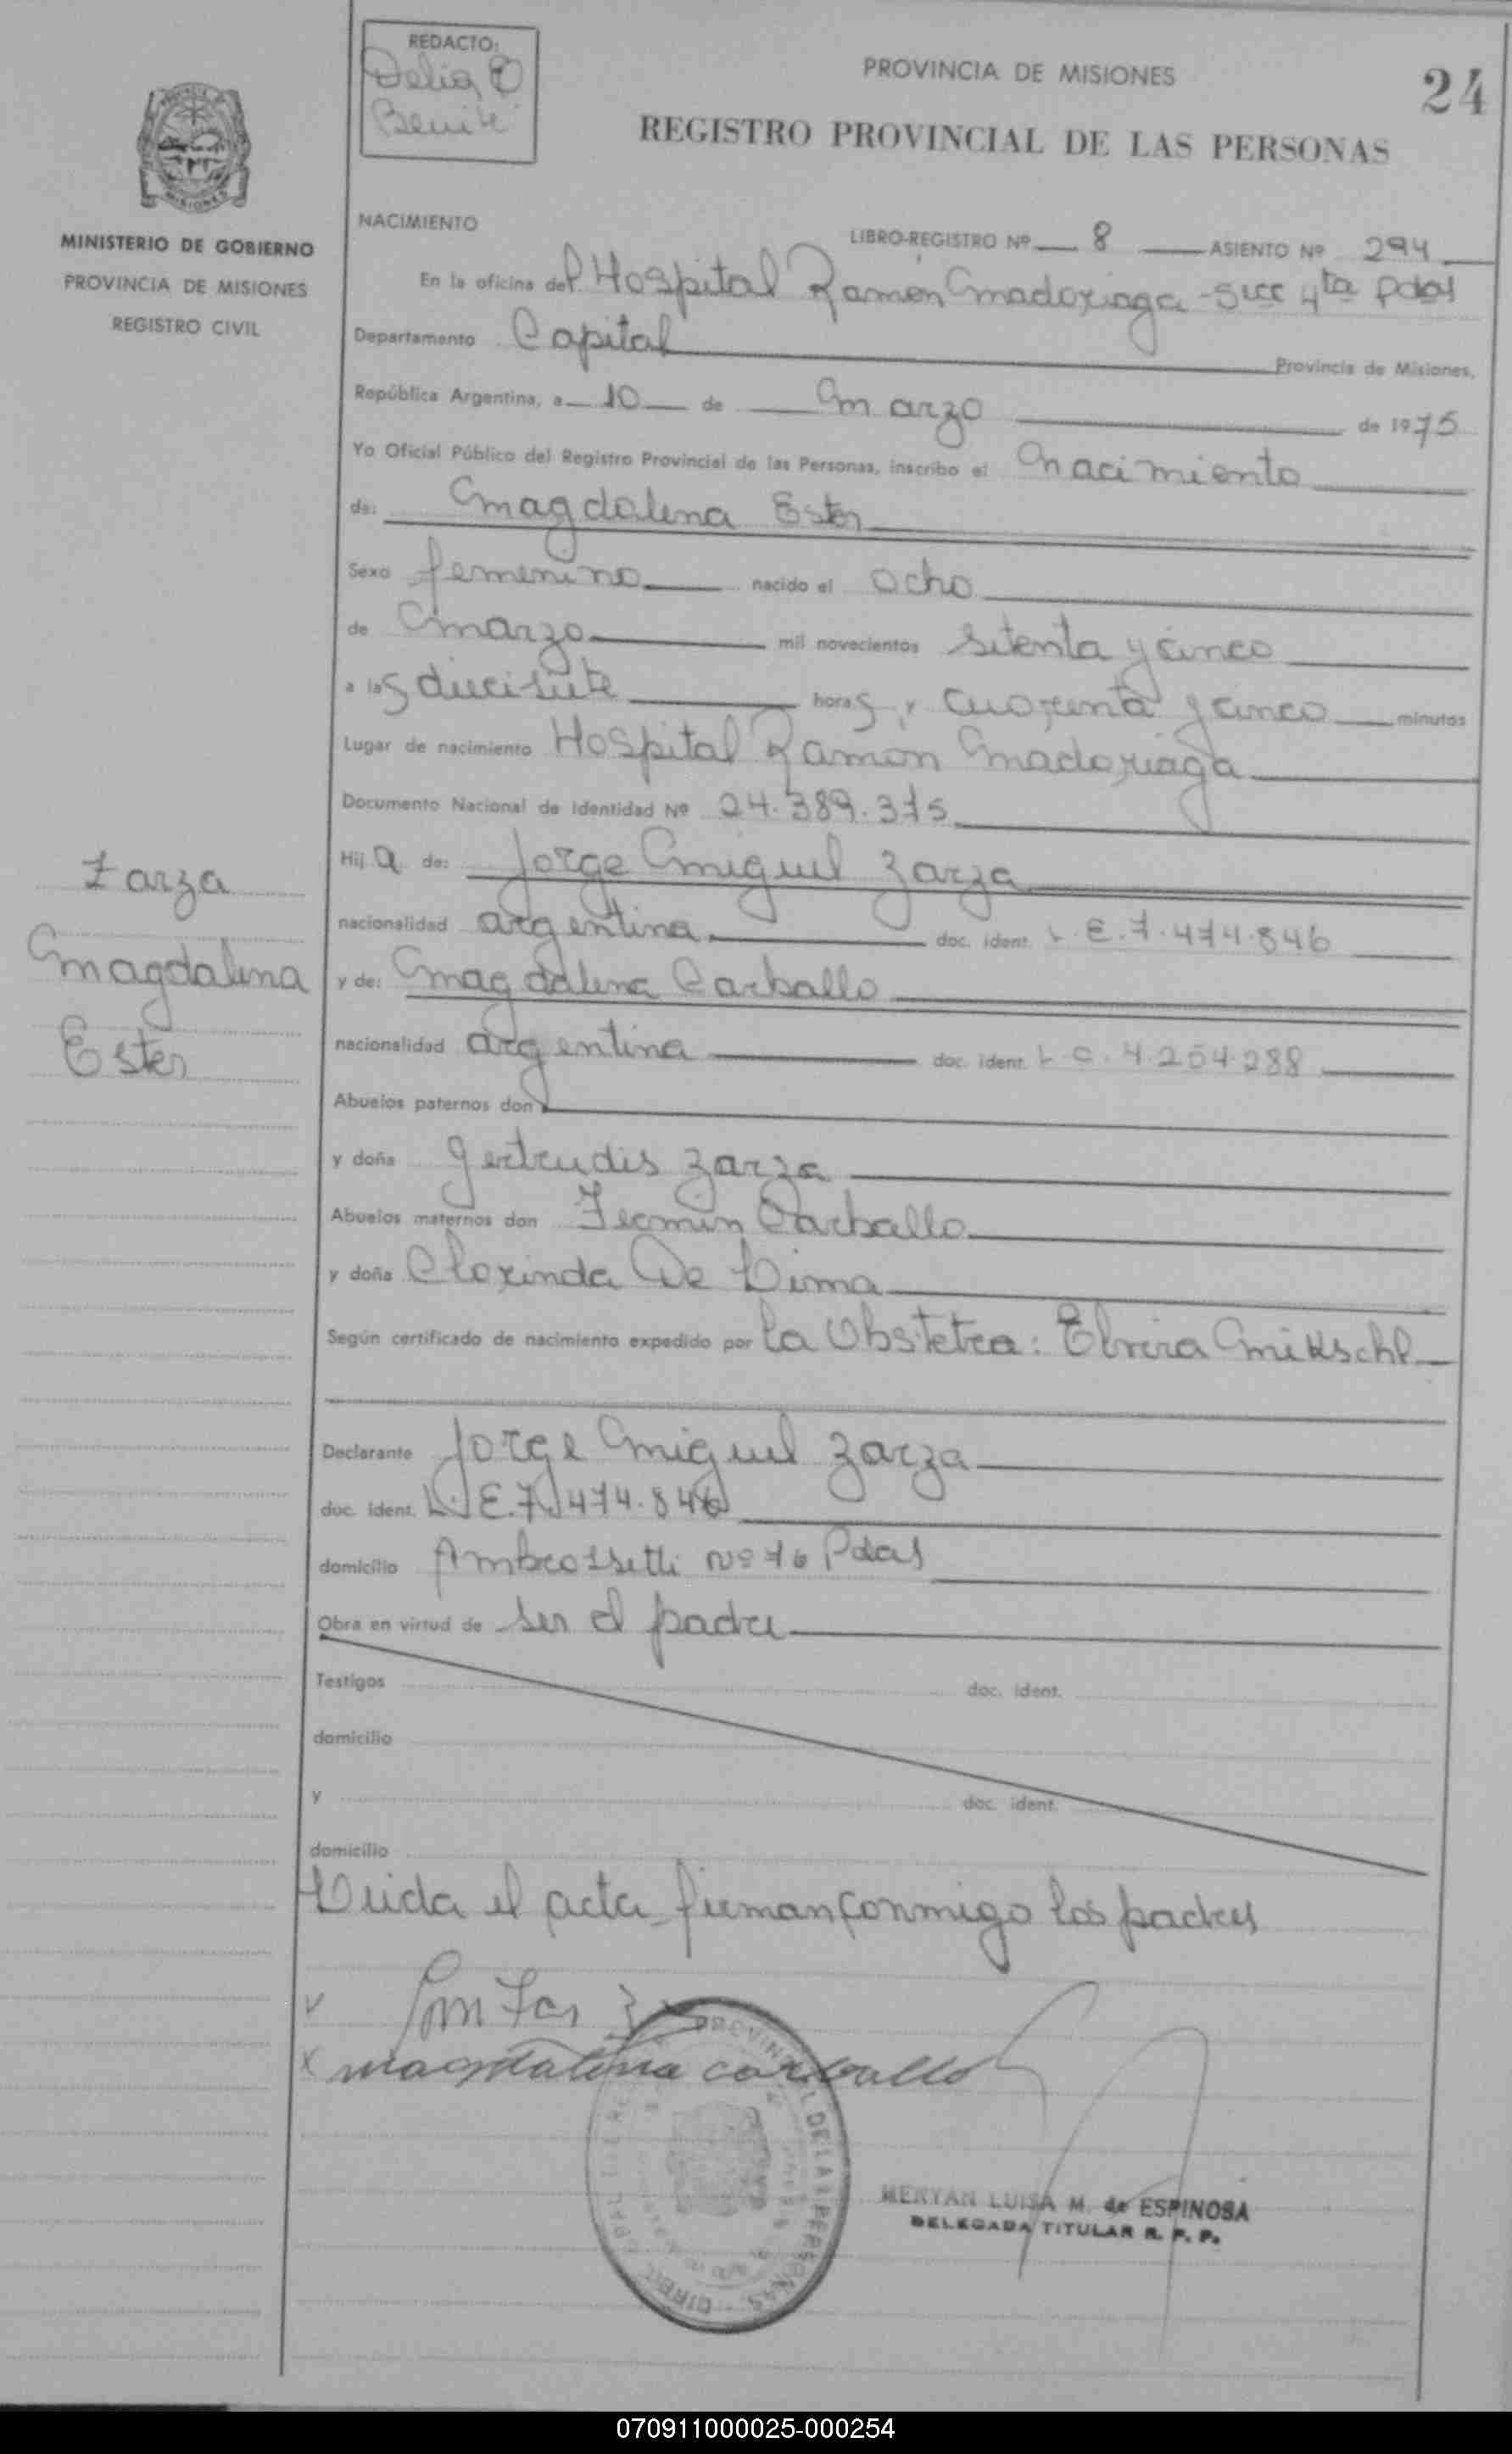 REDACTO:
Delia
PROVINCIA DE MISIONES
24
REGISTRO PROVINCIAL DE LAS PERSONAS
MISIONES
MINISTERIO DE GOBIERNO
PROVINCIA DE MISIONES
REGISTRO CIVIL
NACIMIENTO
LIBRO-REGISTRO Nº 8 ASIENTO Nº 294
En la oficina del Hospital Ramón Madariaga - Secc 4ta Pdas
Departamento Capital Provincia de Misiones,
República Argentina, a 10 de Marzo de 1975
Yo Oficial Público del Registro Provincial de las Personas, inscribo el Nacimiento
de: Magdalena Ester
Sexo femenino nacido el ocho
de Marzo mil novecientos setenta y cinco
a las diecisiete horas, y cuarenta y cinco minutos
Lugar de nacimiento Hospital Ramón Madariaga
Documento Nacional de Identidad Nº 24.389.375
Hij a de: Jorge Miguel Zarza
nacionalidad argentina doc. ident. L.E.7.474.846
y de: Magdalena Carballo
nacionalidad argentina doc. ident. L C. 4.254.288
Abuelos paternos don
y doña Gertrudis Zarza
Abuelos maternos don Fermin Carballo
y doña Clorinda De Lima
Según certificado de nacimiento expedido por la Obstetra: Elvira
Declarante Jorge Miguel Zarza
doc. ident. L.E.7.474.846
domicilio Ambrossetti Nº 76 Pdas
Obra en virtud de ser el padre
Testigos doc. ident.
domicilio
y doc. ident.
domicilio
Leida el acta firman conmigo los padres
Zarza
Magdalena
Ester
magdalena carballo
MERYAN LUISA M. de ESPINOSA
DELEGADA TITULAR R. P. P.
070911000025-000254